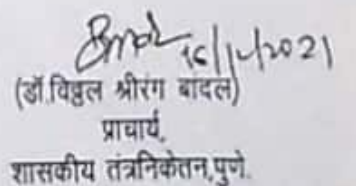 16/12/2021
(डॉ.विठ्ठल श्रीरंग बांदल)
प्राचार्य,
शासकीय तंत्रनिकेतन,पुणे.